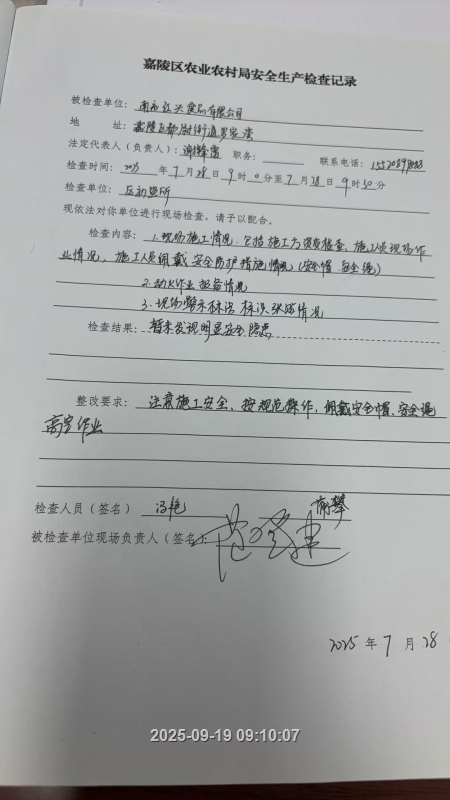 嘉陵区农业农村局安全生产检查记录
被检查单位：南充 食品有限公司
地 址：嘉陵区都尉街道
法定代表人（负责人）： 职务： 联系电话：
检查时间：2025年7月28日9时0分至7月28日9时30分
检查单位：区动监所
现依法对你单位进行现场检查，请予以配合。
检查内容：1.现场施工情况，包括施工方资质检查、施工人员现场作
业情况、施工人员佩戴安全防护措施情况（安全帽 安全绳）
2.动火作业报备情况
3.现场警示标识 标识张贴情况
检查结果：暂未发现明显安全隐患
整改要求：注意施工安全、按规范操作，佩戴安全帽、安全绳
高空作业
检查人员（签名） 冯艳
被检查单位现场负责人（签名）：
2025年7月28
2025-09-19 09:10:07